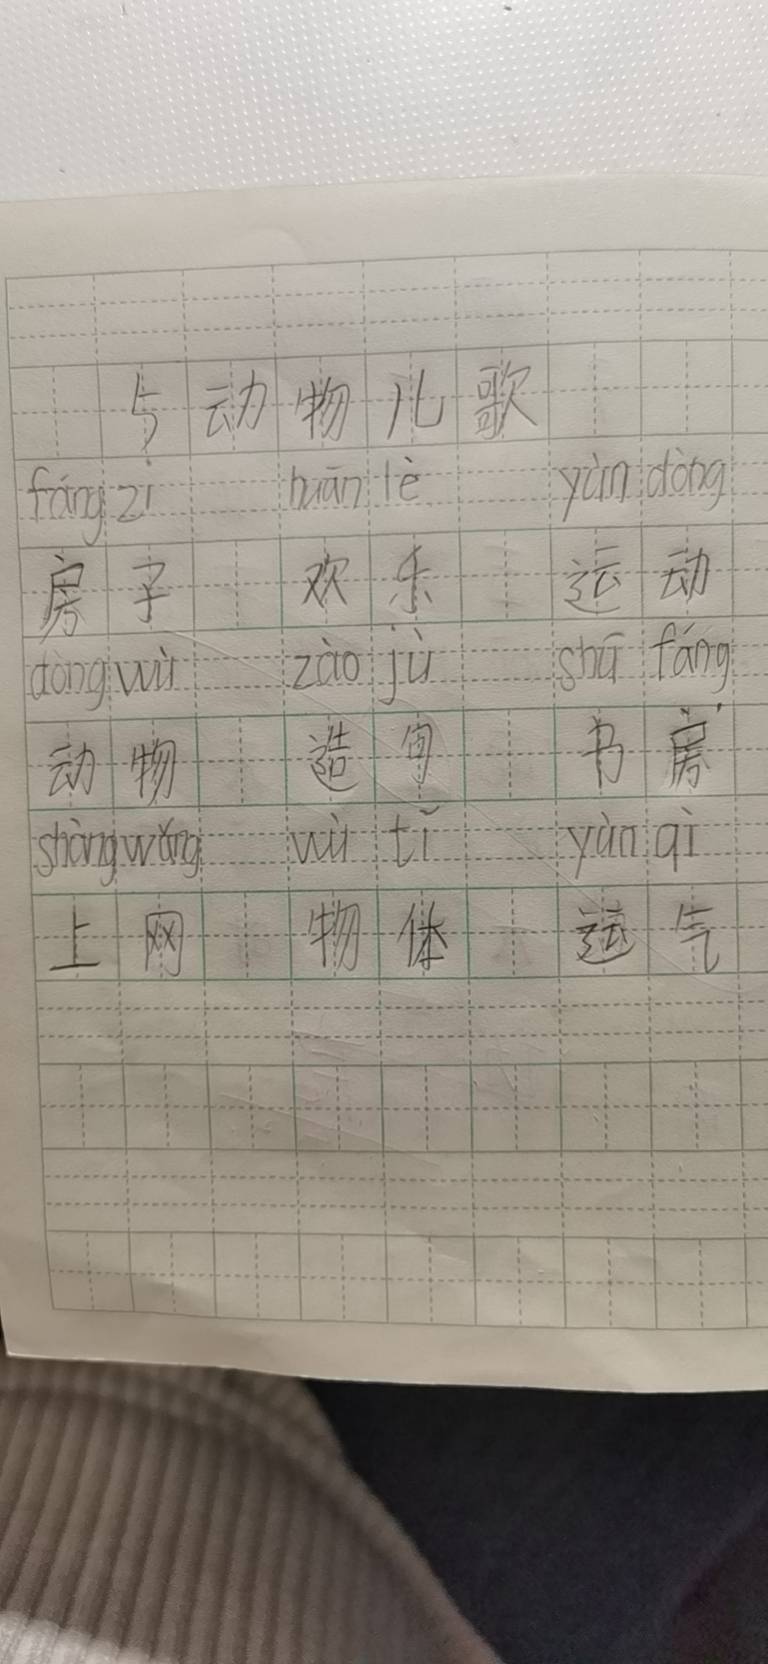 5 动物儿歌
fáng zi huān lè yùn dòng
房子 欢乐 运动
dòng wù zào jù shū fáng
动物 造句 书房
shàng wǎng wù tǐ yùn qì
上网 物体 运气